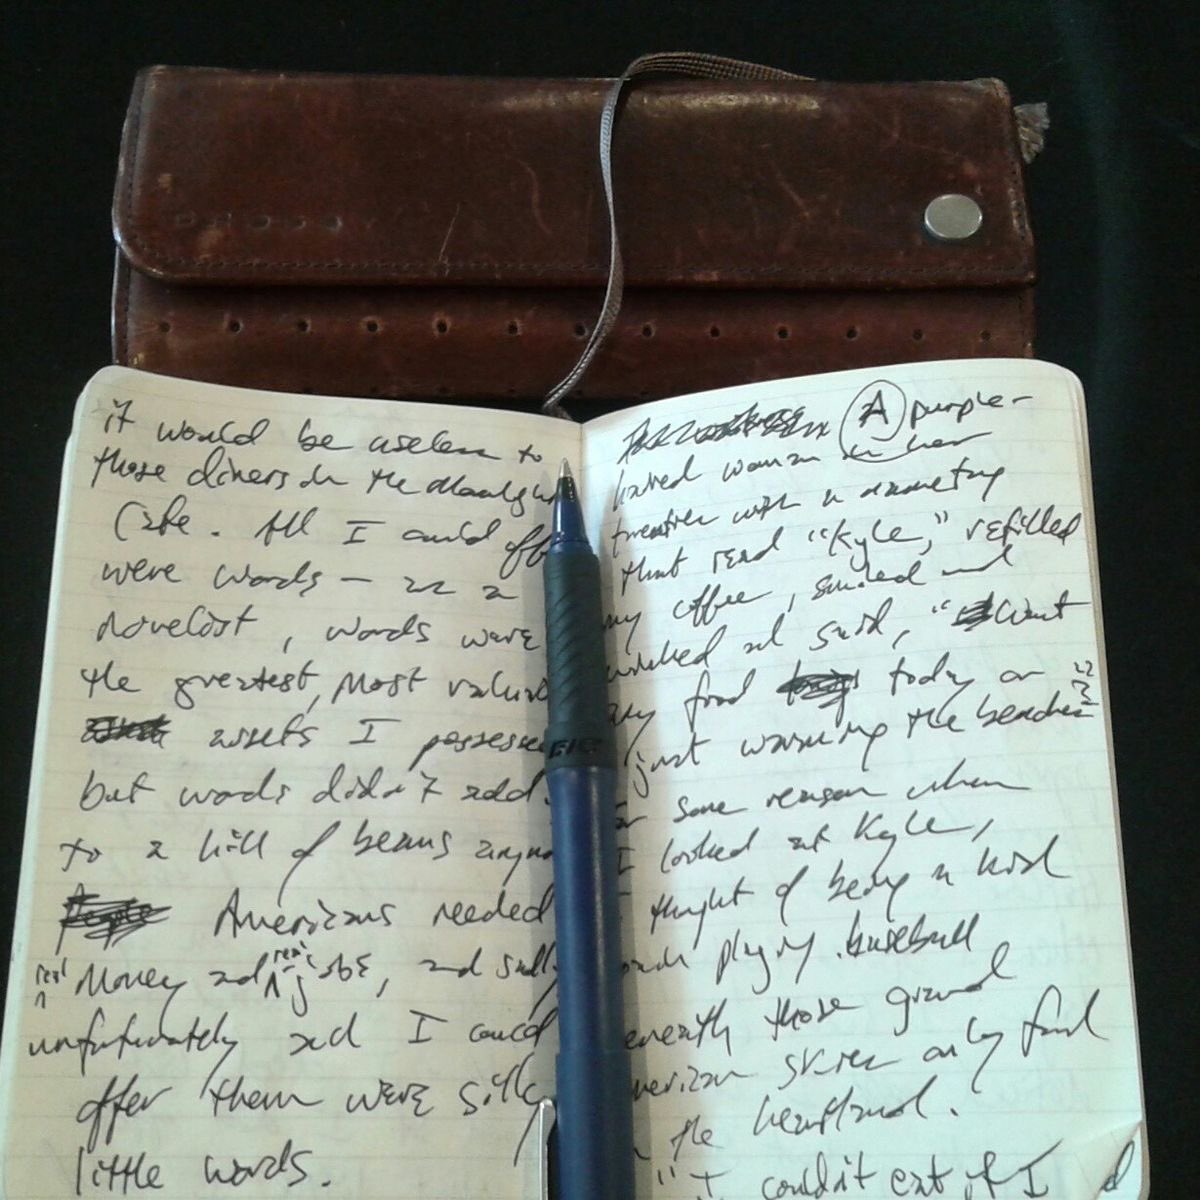 it would be useless to
those diners in the
Cafe. All I could off
were words — as a
novelist, words were
the greatest, most valua
assets I possesse
but words didn't add
to a hill of beans anym
Americans needed
real money and real jobs, and sadly,
unfortunately all I could
offer them were silly
little words.
A purple-
haired woman in her
twenties with a nametag
that read "Kyle," refilled
my coffee, smiled and
winked and said, "Want
any food today or
just warming the benches?"
For some reason when
I looked at Kyle,
I thought of being a kid
and playing baseball
beneath those grand
American skies only found
in the heartland.
"I couldn't eat if I
BIC